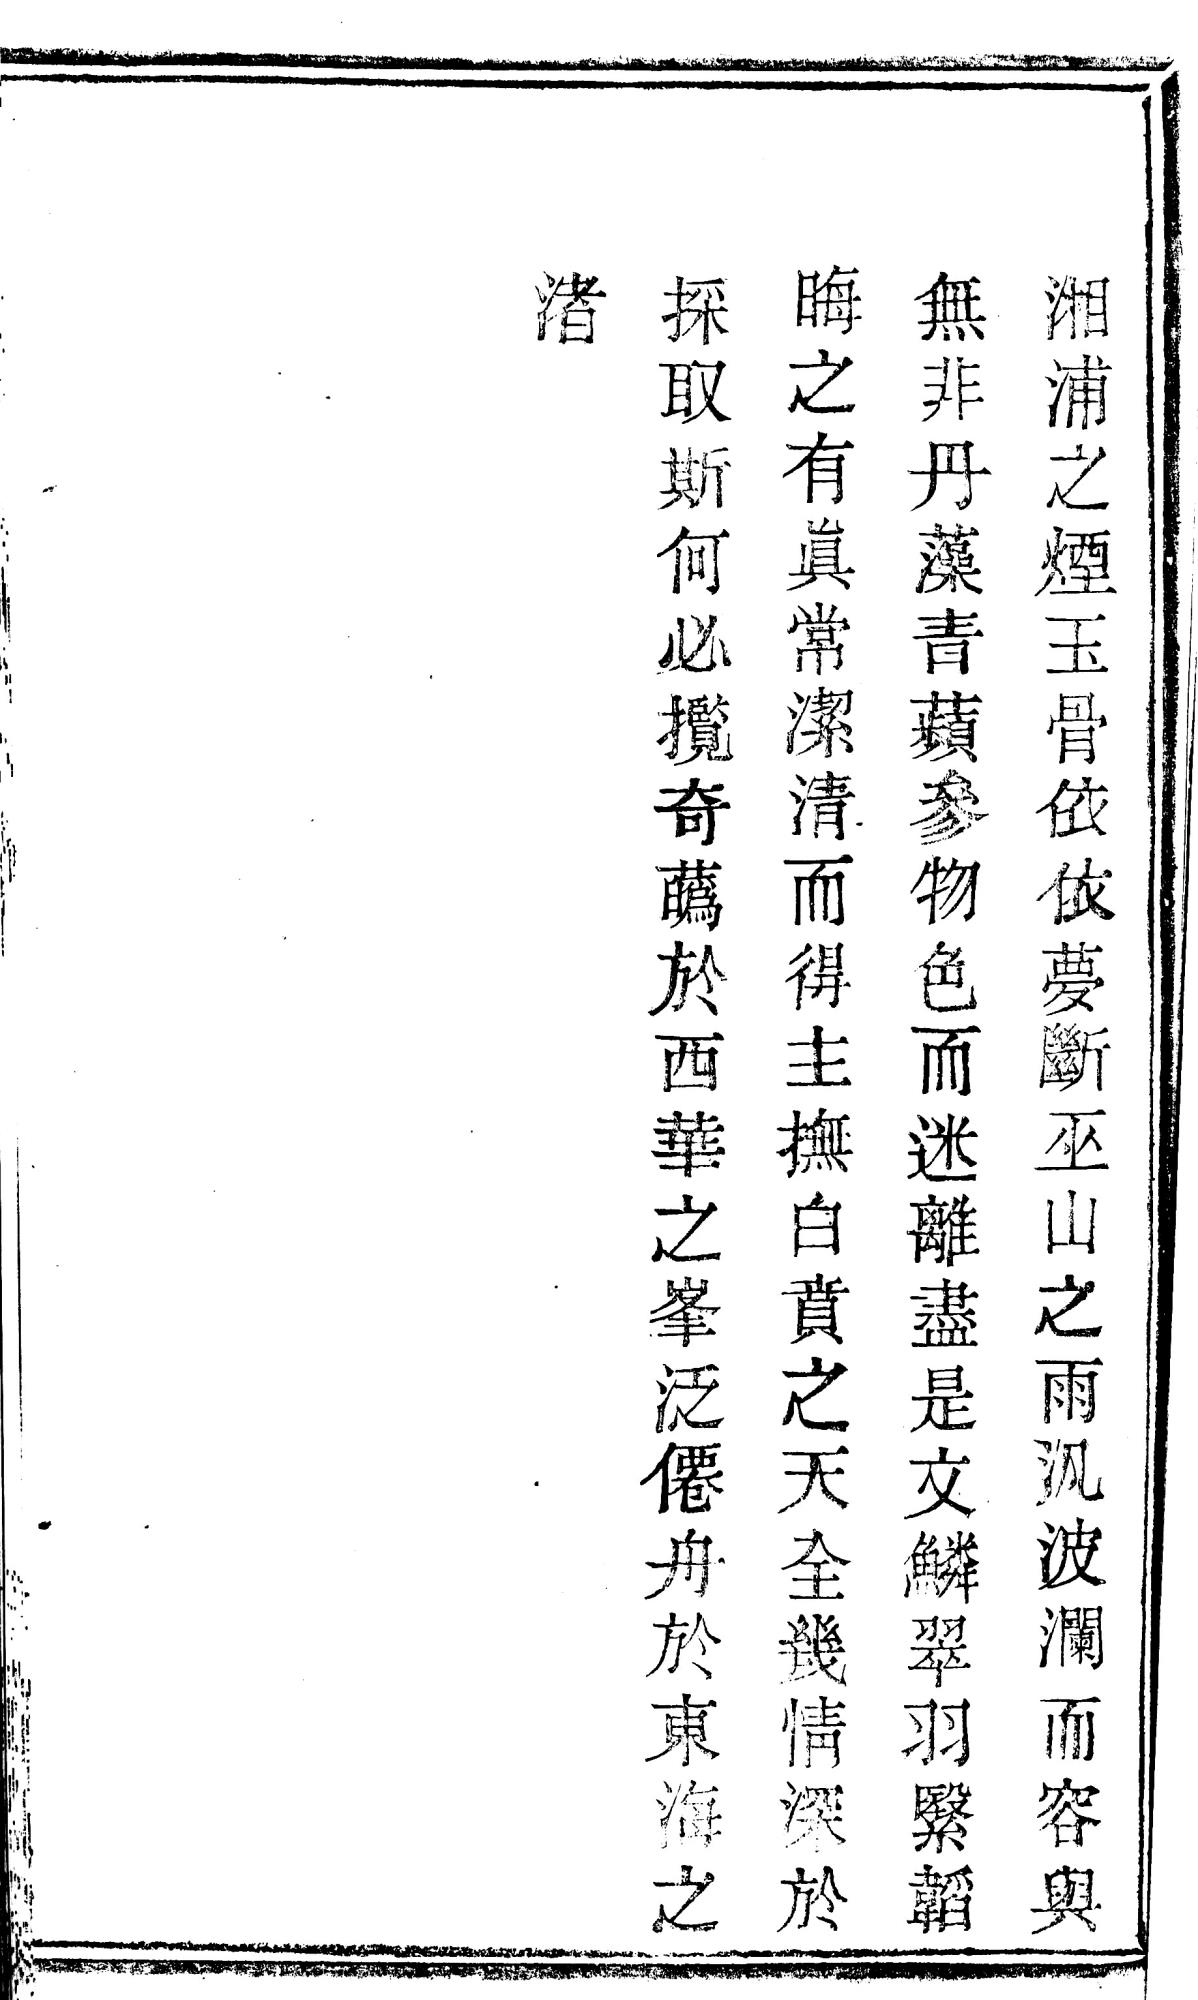 湘浦之煙玉骨依依夢斷巫山之雨汎波瀾而容與
無非丹藻青蘋參物色而迷離盡是文鱗翠羽緊韜
晦之有眞常潔清而得主撫白賁之天全幾情深於
採取斯何必攬奇蘤於西華之峯泛僊舟於東海之
渚